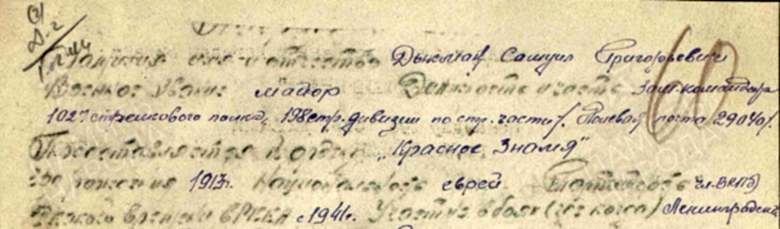 Фамилия имя и отчество Самуил Григорьевич
Военное звание майор Должность и часть Зам. командира
1027 стрелкового полка, 198 стр. дивизии по стр. части/. Полевая почта 29040/.
Представляется к ордену „Красное Знамя”
Год рождения 1913г. Национальность еврей Партийность чл. ВКП(б)
С какого времени в РККА с 1941г. Участие в боях (где когда) Ленинградск
60